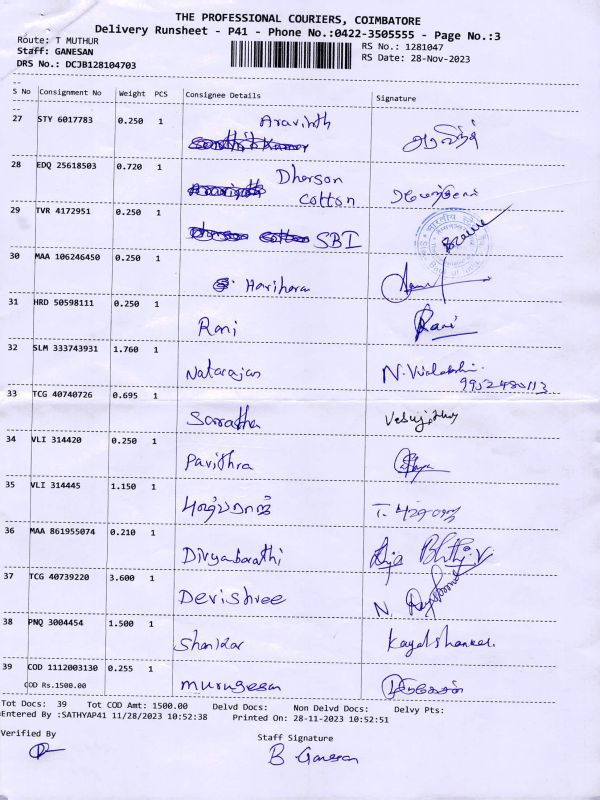 THE PROFESSIONAL COURIERS, COIMBATORE
Delivery Runsheet - P41 - Phone No.:0422-3505555 - Page No.:3
Route: T MUTHUR
RS No.: 1281047
Staff: GANESAN
RS Date: 28-Nov-2023
DRS No.: DCJB128104703
S No Consignment No Weight PCS Consignee Details Signature
27 STY 6017783 0.250 1 Aravinth
28 EDQ 25618503 0.720 1 Dherson
Cotton
29 TVR 4172951 0.250 1 SBI
30 MAA 106246450 0.250 1 Harihara
31 HRD 50598111 0.250 1 Rani Rani
32 SLM 333743931 1.760 1 Natarajan
9952480113
33 TCG 40740726 0.695 1 Saratha
34 VLI 314420 0.250 1 Pavithra
35 VLI 314445 1.150 1
36 MAA 861955074 0.210 1 Divyabarathi
37 TCG 40739220 3.600 1 Devishree
38 PNQ 3004454 1.500 1 Shankar
39 COD 1112003130 0.255 1 Murugesan முருகேசன்
COD Rs.1500.00
Tot Docs: 39 Tot COD Amt: 1500.00 Delvd Docs: Non Delvd Docs: Delvy Pts:
Entered By :SATHYAP41 11/28/2023 10:52:38 Printed On: 28-11-2023 10:52:51
Verified By
Staff Signature
B Ganesan